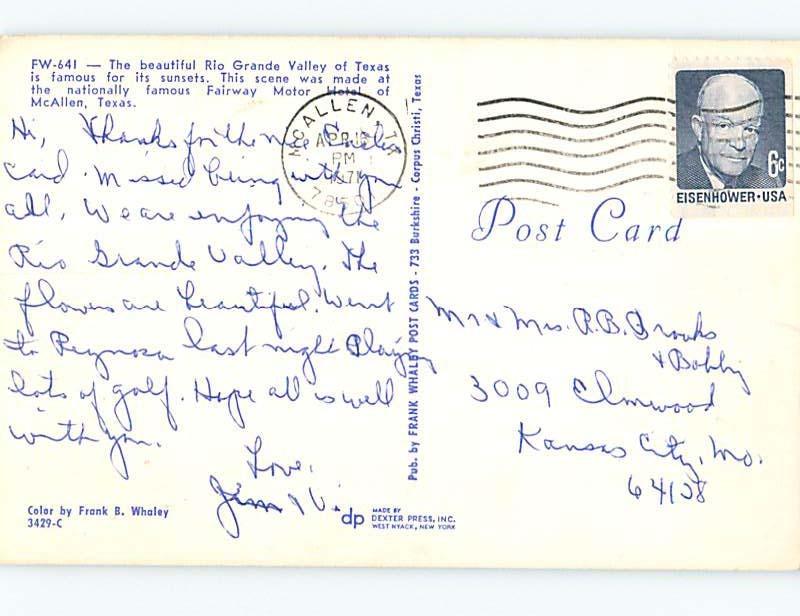 FW-641 — The beautiful Rio Grande Valley of Texas
is famous for its sunsets. This scene was made at
the nationally famous Fairway Motor Hotel of
McAllen, Texas.
Hi, Thanks for the nice Easter
card. Missed being with you
all. We are enjoying the
Rio Grande Valley. The
flowers are beautiful. Went
to Reynosa last night. Playing
lots of golf. Hope all is well
with you.
Love,
Jim & Vi.
Color by Frank B. Whaley
3429-C
Pub. by FRANK WHALEY POST CARDS - 733 Burkshire - Corpus Christi, Texas
dp
MADE BY
DEXTER PRESS, INC.
WEST NYACK, NEW YORK
McALLEN, TX
APR
PM
1971
6c
EISENHOWER·USA
Post Card
Mr & Mrs. R.B. Brooks
& Bobby
3009 Elmwood
Kansas City, Mo.
64128